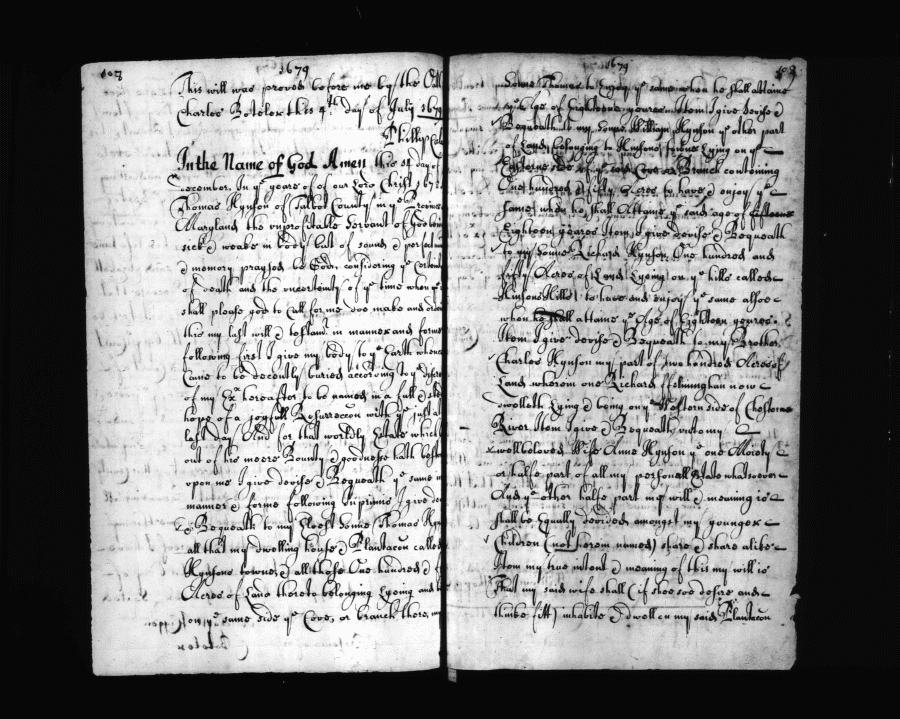 108
1679
This will was proved before me by the
Charles Boteler this 4th day of July 1679
Phillip
In the Name of God Amen this
December. In ye yeare of of our Lord Christ
Thomas Hynson of Talbot County in ye
Maryland the unprofitable Servant of God
sick & weake in body but of sound &
& memory praysed be God, considering ye
of death and the uncertenty of ye time when
shall please god to Call for me doe make and
this my last will & in manner and forme
following first I give my body to ye Earth whence
Came to be decently burried according to ye
of my Exr hereafter to be named in a full &
hope of a joyfull Resurreccon with ye just
last day And for that worldly Estate which
out of his meere Bounty & goodness hath
upon me I give devise & Bequeath ye same
manner & forme following Inprimis I give
& Bequeath to my Eldest Sonne Thomas
all that my dwelling house & Plantacon called
Hynsons towne, & all those One hundred &
Acres of Land thereto belonging Lyeing and
on ye same side ye Cove, or branch there,
1679
Sonne Thomas to Enjoy ye same when he shall attaine
ye Age of Eighteene yeares Item I give devise &
Bequeath to my Sonne William Hynson ye other part
of Land belonging to Hynsons towne Lying on ye
Easterne side of ye said Cove or Branch conteining
One hundred & fifty Acres to have & enjoy ye
same when he shall Attaine ye said age of
Eighteen yeares Item I give devise & Bequeath
to my Sonne Richard Hynson One hundred and
fifty Acres of Land Lyeing on ye hills called
Hynsons Hills to have and enjoy ye same alsoe
when he shall attaine ye Age of Eighteen yeares.
Item I give devise & Bequeath to my Brother
Charles Hynson my part of two hundred Acres of
Land wherein one Richard now
dwelleth Lying & being on ye Western side of Chesterne
River Item I give & Bequeath unto my
wellbeloved Wife Anne Hynson ye one Moiety
or halfe part of all my personall Estate whatsoever
And ye other halfe part my will & meaning is
shall be Equally devided amongst my younger
Children (not herein named) share & share alike
Item my true intent & meaning of this my will is
That my said wife shall (if shee soe desire and
thinke fitt) inhabite & dwell in my said Plantacon